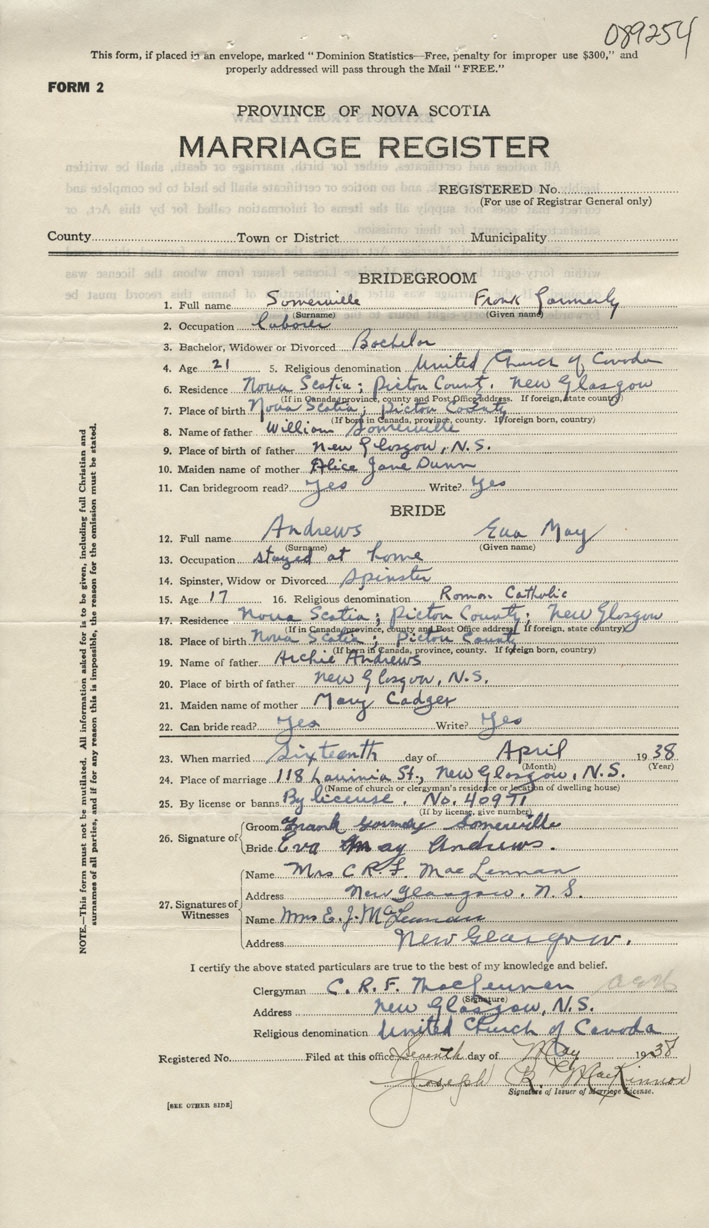 089254
This form, if placed in an envelope, marked "Dominion Statistics—Free, penalty for improper use $300," and
properly addressed will pass through the Mail "FREE."
FORM 2
PROVINCE OF NOVA SCOTIA
MARRIAGE REGISTER
REGISTERED No.
(For use of Registrar General only)
County Town or District Municipality
BRIDEGROOM
1. Full name Somerville Frank Gormerly
(Surname) (Given name)
2. Occupation Laborer
3. Bachelor, Widower or Divorced Bachelor
4. Age 21 5. Religious denomination United Church of Canada
6. Residence Nova Scotia; Pictou Count. New Glasgow
(If in Canada, province, county and Post Office address. If foreign, state country)
7. Place of birth Nova Scotia; Pictou County
(If born in Canada, province, county. If foreign born, country)
8. Name of father William Somerville
9. Place of birth of father New Glasgow, N.S.
10. Maiden name of mother Alice Jane Dunn
11. Can bridegroom read? Yes Write? Yes
BRIDE
12. Full name Andrews Eva May
(Surname) (Given name)
13. Occupation stayed at home
14. Spinster, Widow or Divorced Spinster
15. Age 17 16. Religious denomination Roman Catholic
17. Residence Nova Scotia; Pictou County; New Glasgow
(If in Canada, province, county and Post Office address. If foreign, state country)
18. Place of birth Nova Scotia; Pictou County
(If born in Canada, province, county. If foreign born, country)
19. Name of father Archie Andrews
20. Place of birth of father New Glasgow, N.S.
21. Maiden name of mother Mary Cadger
22. Can bride read? Yes Write? Yes
23. When married Sixteenth day of April 1938
(Month) (Year)
24. Place of marriage 118 Lavinia St., New Glasgow, N.S.
(Name of church or clergyman's residence or location of dwelling house)
25. By license or banns By license. No. 40971
(If by license, give number)
26. Signature of Groom Frank Gormely Somerville
Bride Eva May Andrews.
27. Signatures of Witnesses
Name Mrs C.R.F. MacLennan
Address New Glasgow. N.S.
Name Mrs E. J. McLennan
Address New Glasgow.
I certify the above stated particulars are true to the best of my knowledge and belief.
Clergyman C. R. F. MacLennan
(Signature)
Address New Glasgow, N.S.
Religious denomination United Church of Canada
Registered No. Filed at this office Seventh day of May 1938
Joseph R. MacKinnon
Signature of Issuer of Marriage License.
[SEE OTHER SIDE]
NOTE.—This form must not be mutilated. All information asked for is to be given, including full Christian and
surnames of all parties, and if for any reason this is impossible, the reason for the omission must be stated.